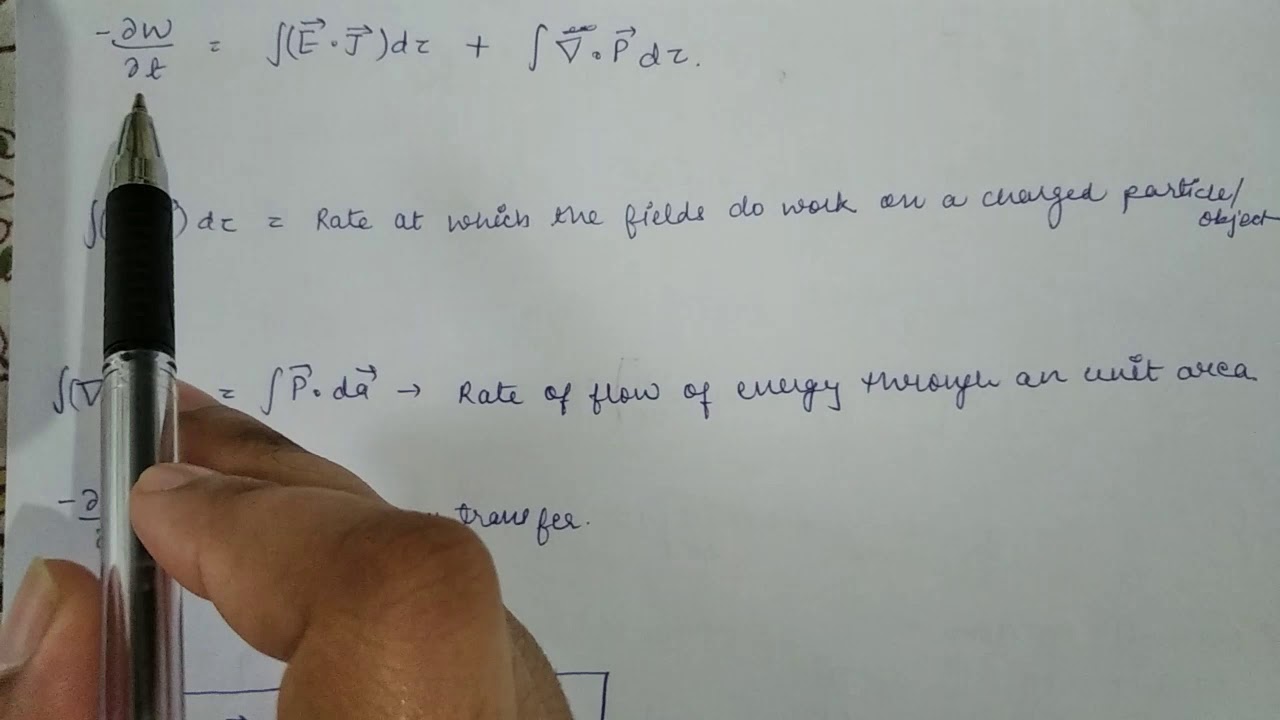 -∂W/∂t = ∫(E⃗ · J⃗)dτ + ∫ ∇⃗ · P⃗ dτ.
∫( )dτ = Rate at which the fields do work on a charged particle/object
∫(∇ = ∫ P⃗ · da⃗ → Rate of flow of energy through an unit area
-∂ transfer.